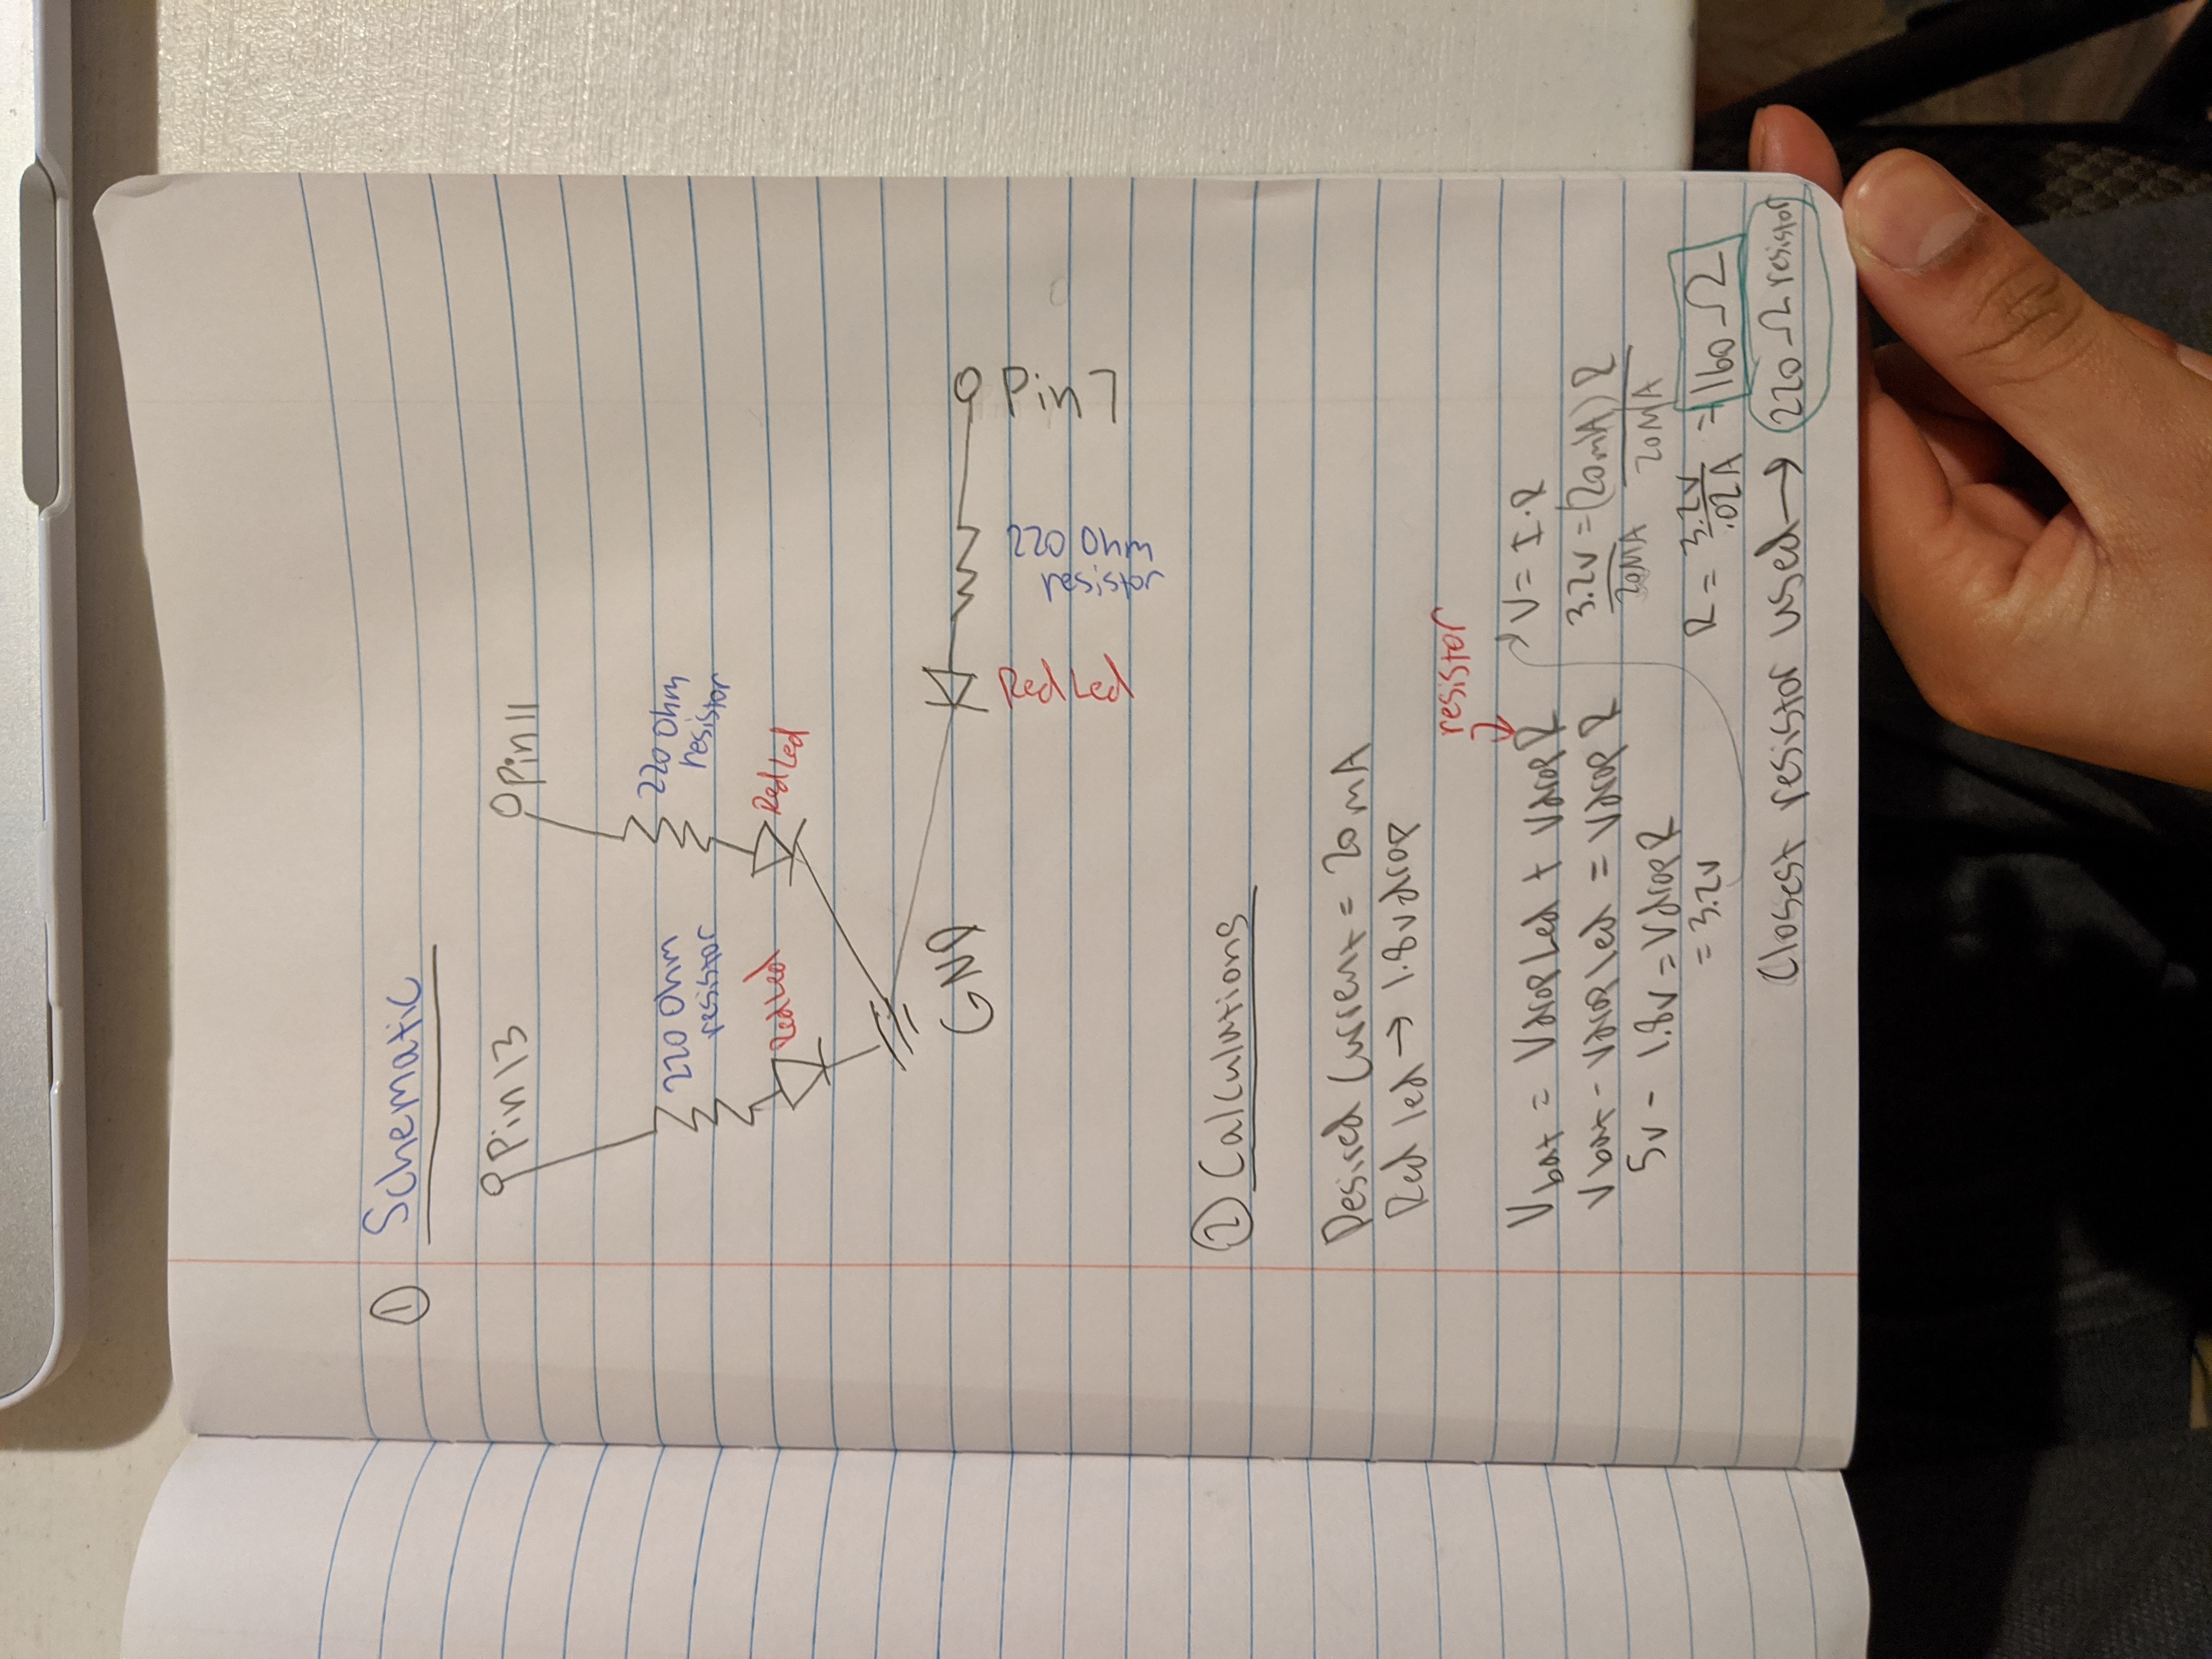 ① Schematic
Pin 13
Pin 11
220 Ohm
resistor
220 Ohm
resistor
Red Led
Red Led
GND
Red Led
220 Ohm
resistor
Pin 7
② Calculations
Desired Current = 20mA
Red led → 1.8v drop
resistor
Vbat = Vdrop Led + Vdrop R
Vbat - Vdrop led = Vdrop R
5v - 1.8v = Vdrop R
= 3.2v
V = I·R
3.2v = (20mA) R
20MA 20MA
R = 3.2v/.02A = 160 Ω
Closest resistor used → 220 Ω resistor